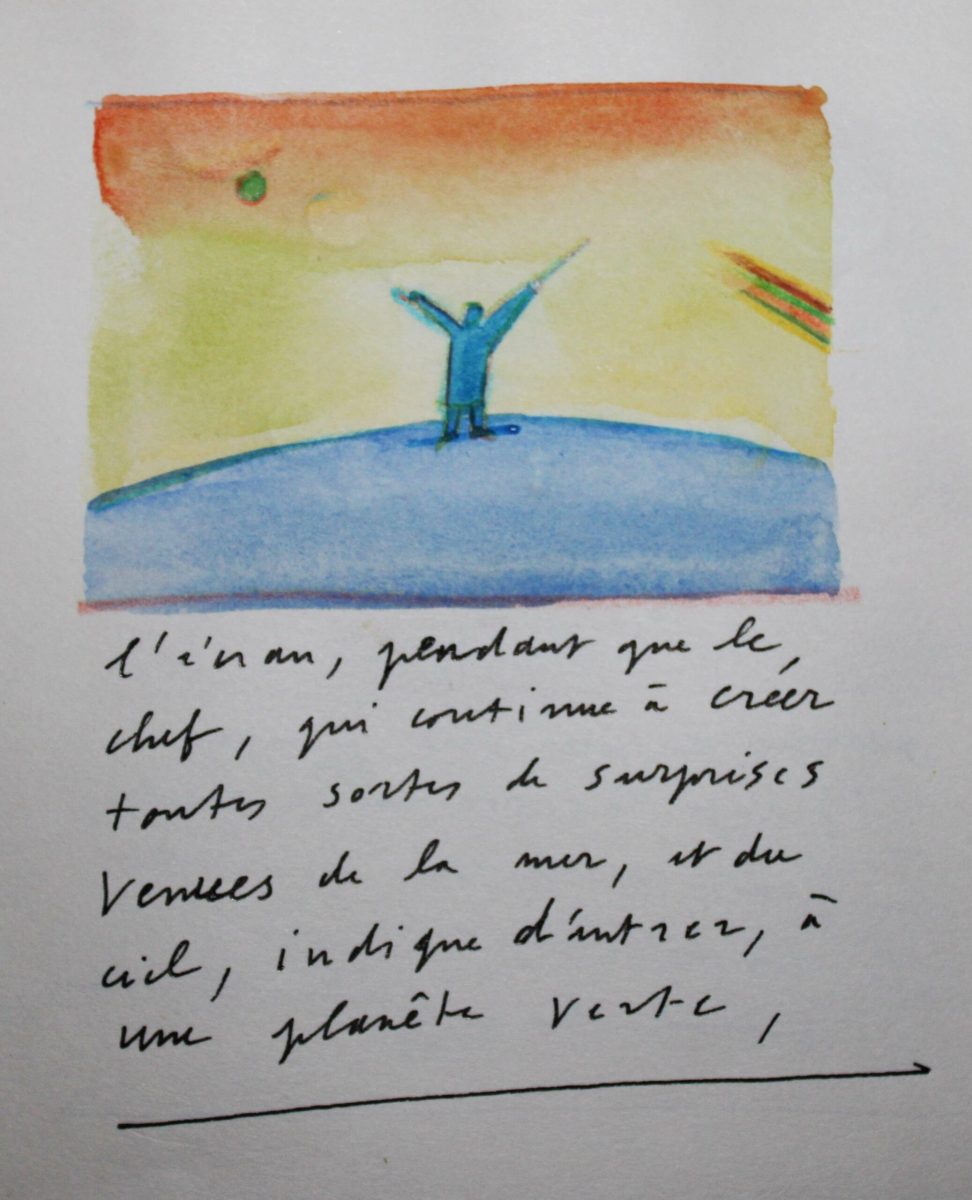 l'écran, pendant que le,
chef, qui continue à créer
toutes sortes de surprises
venues de la mer, et du
ciel, indique d'entrer, à
une planète verte,